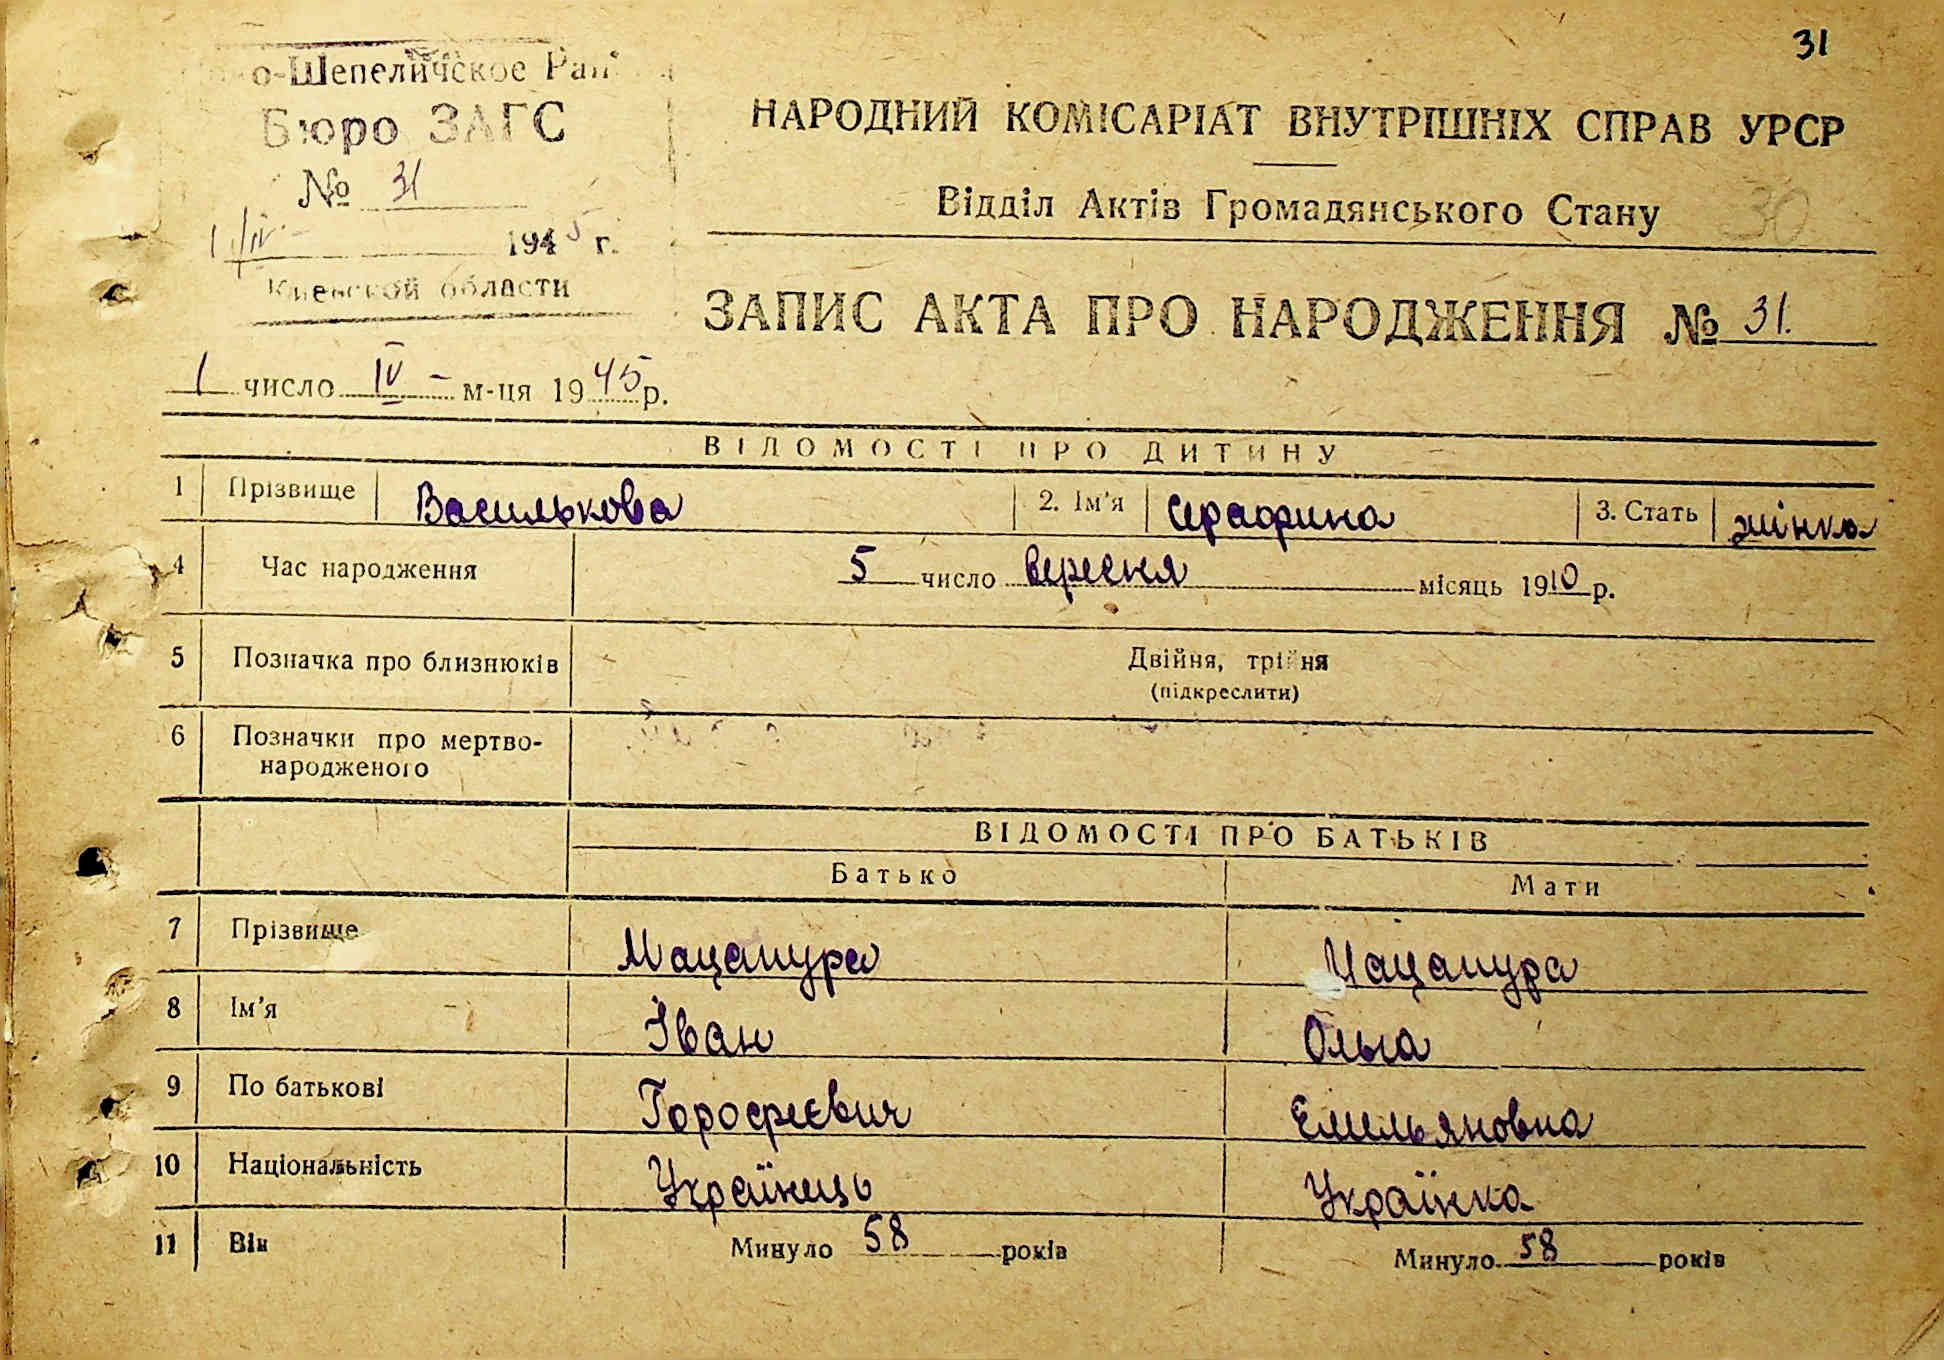 31
о-Шепеличское Рай
Бюро ЗАГС
№ 31
1/IV - 1945 г.
Киевской области
НАРОДНИЙ КОМІСАРІАТ ВНУТРІШНІХ СПРАВ УРСР
Відділ Актів Громадянського Стану 30
ЗАПИС АКТА ПРО НАРОДЖЕННЯ № 31.
1 число IV - м-ця 1945 р.
ВІДОМОСТІ ПРО ДИТИНУ
1 Прізвище Василькова 2. Ім'я Серафина 3. Стать жінка
4 Час народження 5 число вересня місяць 1910 р.
5 Позначка про близнюків Двійня, трійня
(підкреслити)
6 Позначки про мертво-
народженого
ВІДОМОСТІ ПРО БАТЬКІВ
Батько Мати
7 Прізвище Мацапура Мацапура
8 Ім'я Іван Ольга
9 По батькові Горофеєвич Емильяновна
10 Національність Українець Українка
11 Вік Минуло 58 років Минуло 58 років